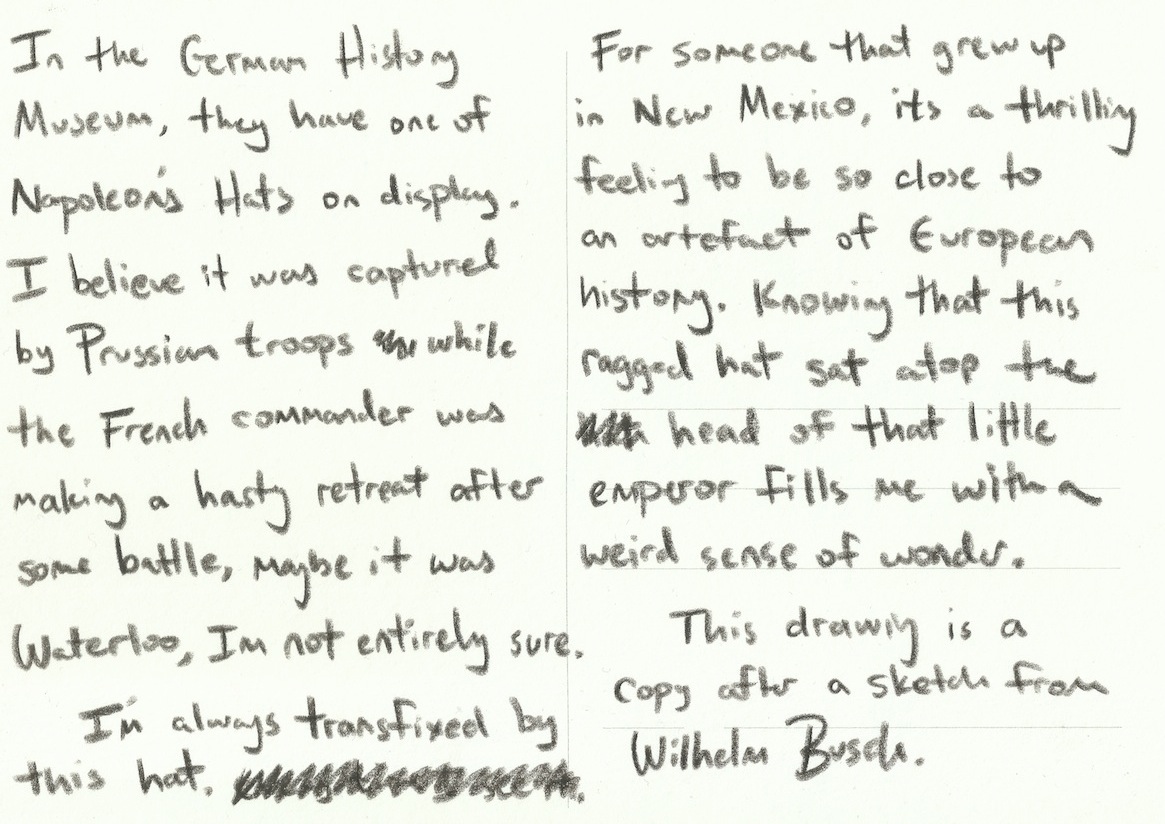 In the German History
Museum, they have one of
Napoleon's Hats on display.
I believe it was captured
by Prussian troops while
the French commander was
making a hasty retreat after
some battle, maybe it was
Waterloo, Im not entirely sure.
I'm always transfixed by
this hat.
For someone that grew up
in New Mexico, its a thrilling
feeling to be so close to
an artefact of European
history. Knowing that this
ragged hat sat atop the
head of that little
emperor fills me with a
weird sense of wonder.
This drawing is a
copy after a sketch from
Wilhelm Busch.